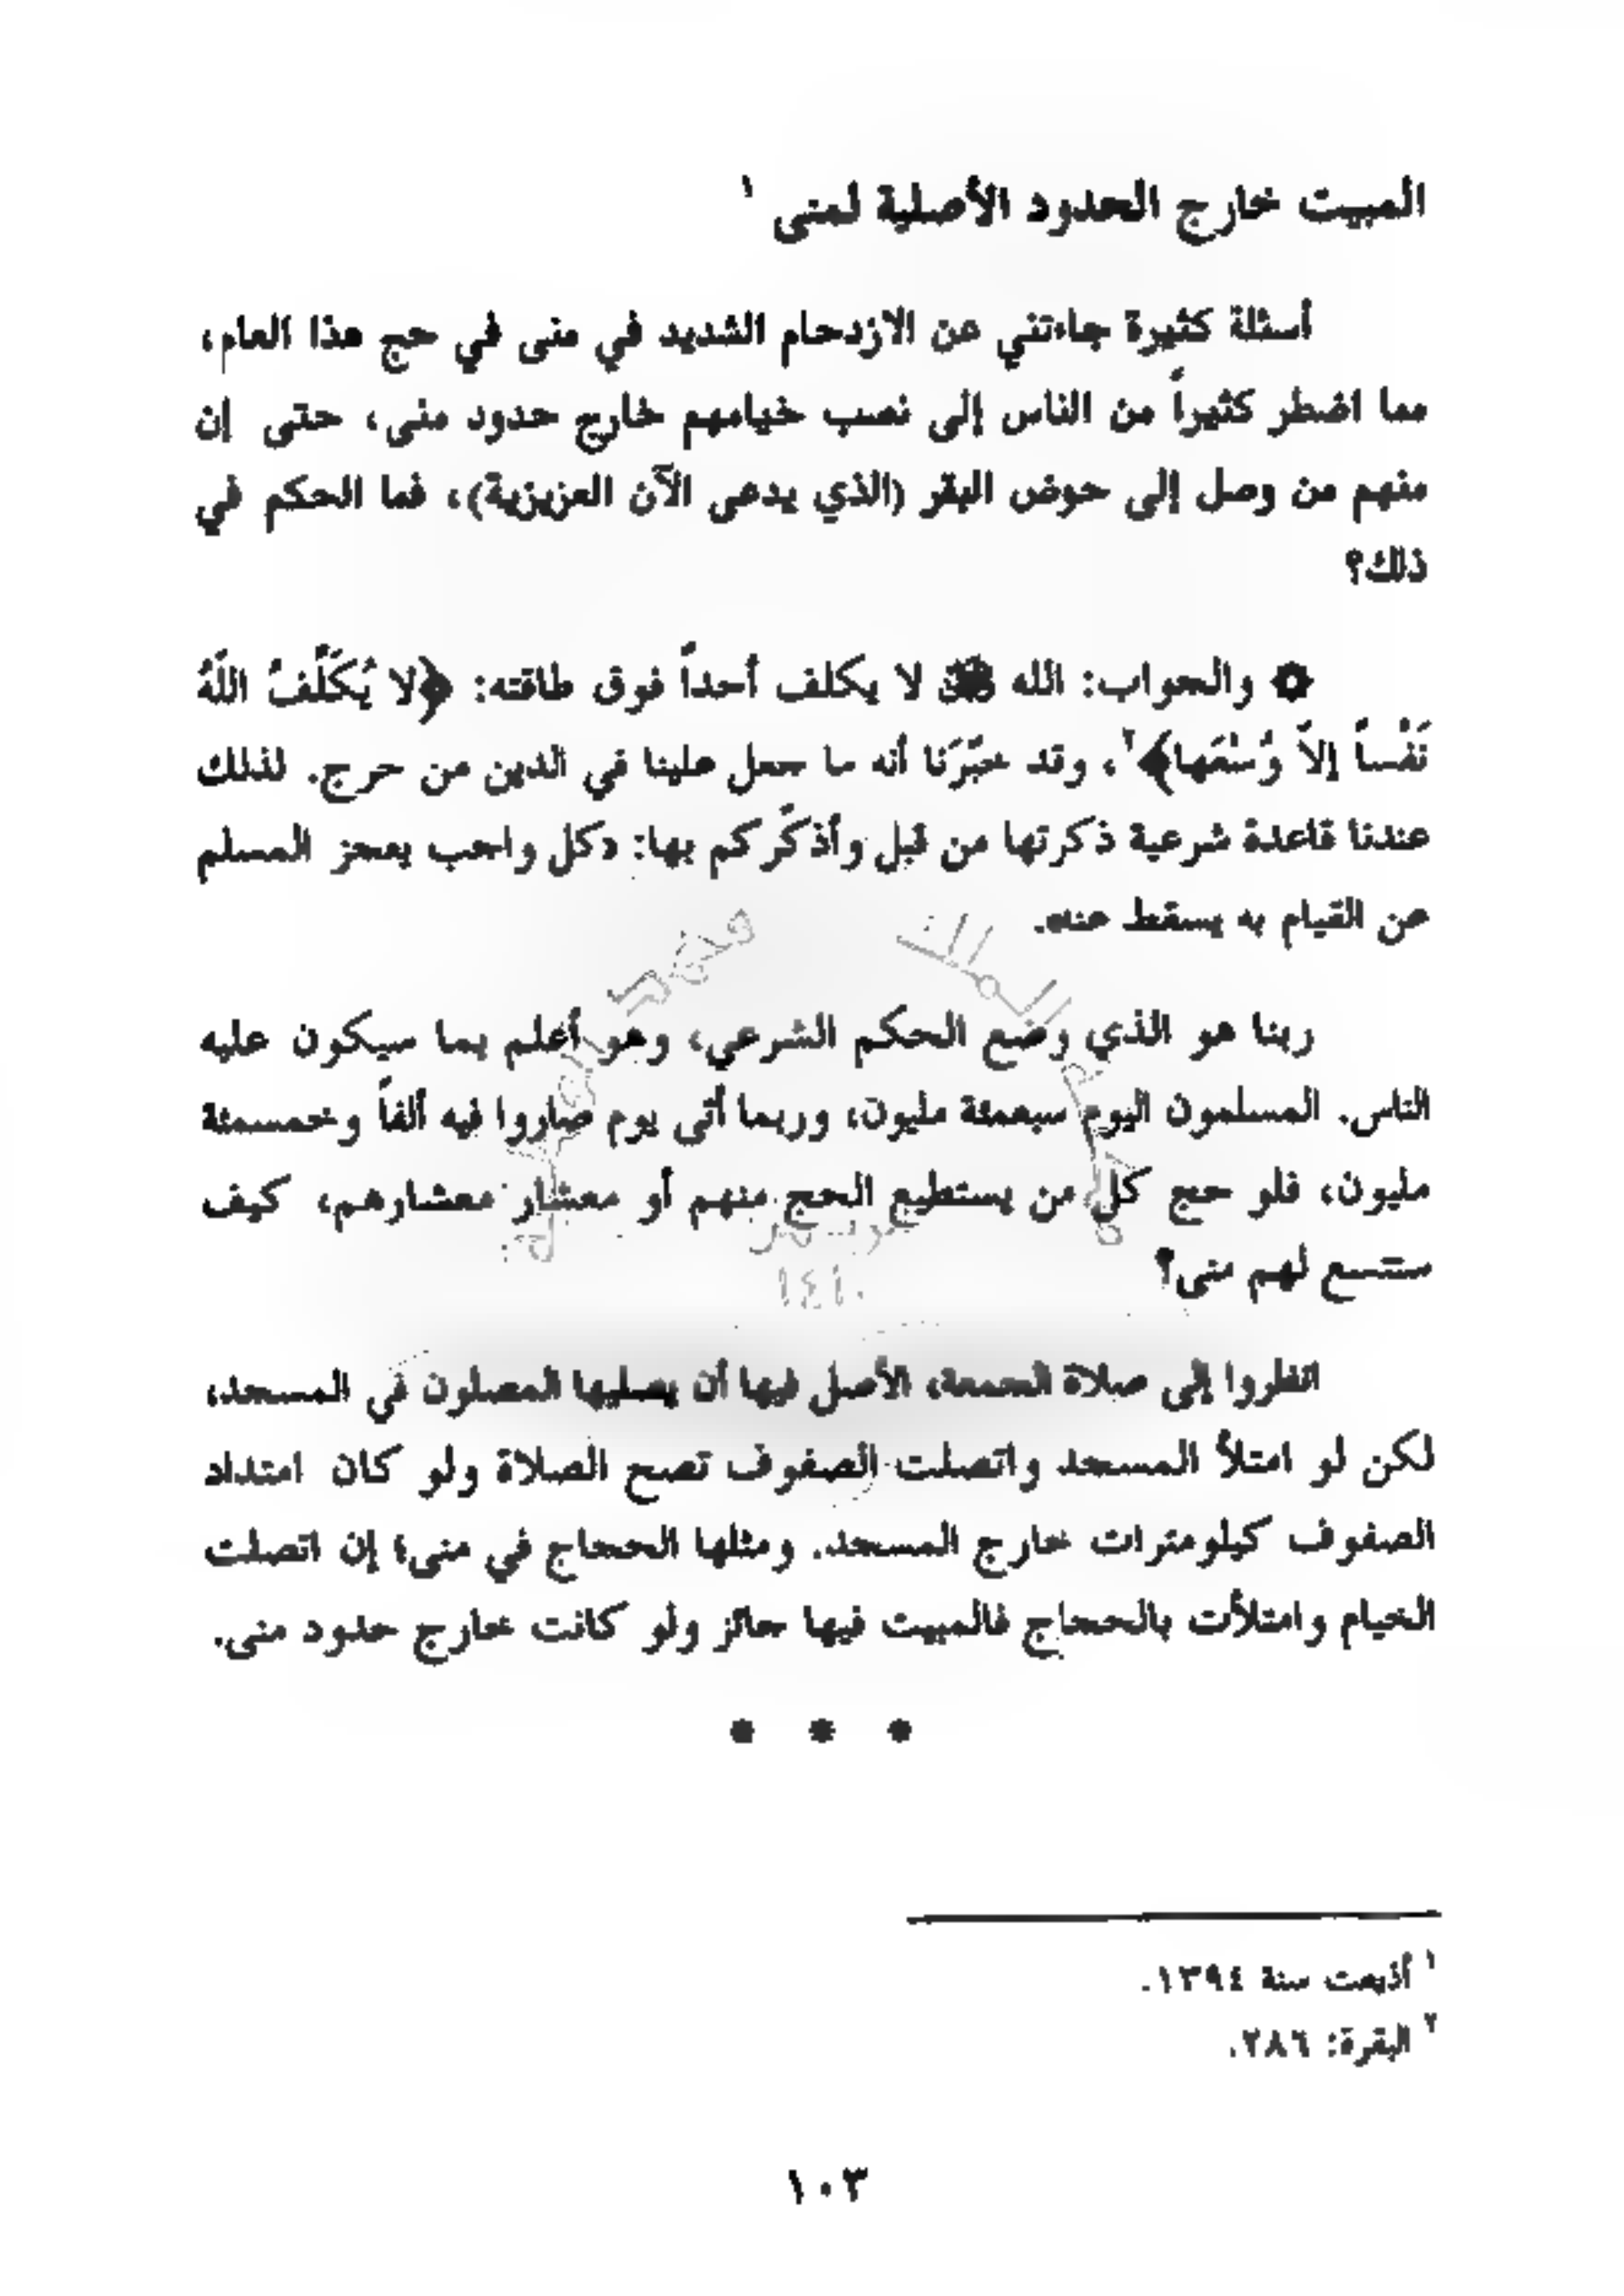 المبيت خارج الحدود الأصلية لمنى ١
أسئلة كثيرة جاءتني عن الازدحام الشديد في منى في حج هذا العام،
مما اضطر كثيراً من الناس إلى نصب خيامهم خارج حدود منى، حتى إن
منهم من وصل إلى حوض البقر (الذي يدعى الآن العزيزية)، فما الحكم في
ذلك؟
۞ والجواب: الله ﷻ لا يكلف أحداً فوق طاقته: ﴿لا يُكَلِّفُ اللَّهُ
نَفْساً إلاّ وُسْعَها﴾٢، وقد خبّرَنا أنه ما جعل علينا في الدين من حرج. لذلك
عندنا قاعدة شرعية ذكرتها من قبل وأذكّركم بها: «كل واجب يعجز المسلم
عن القيام به يسقط عنه».
ربنا هو الذي وضع الحكم الشرعي، وهو أعلم بما سيكون عليه
الناس. المسلمون اليوم سبعمئة مليون، وربما أتى يوم صاروا فيه ألفاً وخمسمئة
مليون، فلو حج كل من يستطيع الحج منهم أو معشار معشارهم، كيف
ستتسع لهم منى؟
انظروا إلى صلاة الجمعة، الأصل فيها أن يصليها المصلون في المسجد،
لكن لو امتلأ المسجد واتصلت الصفوف تصح الصلاة ولو كان امتداد
الصفوف كيلومترات خارج المسجد. ومثلها الحجاج في منى؛ إن اتصلت
الخيام وامتلأت بالحجاج فالمبيت فيها جائز ولو كانت خارج حدود منى.
* * *
١ أذيعت سنة ١٣٩٤.
٢ البقرة: ٢٨٦.
١٠٣